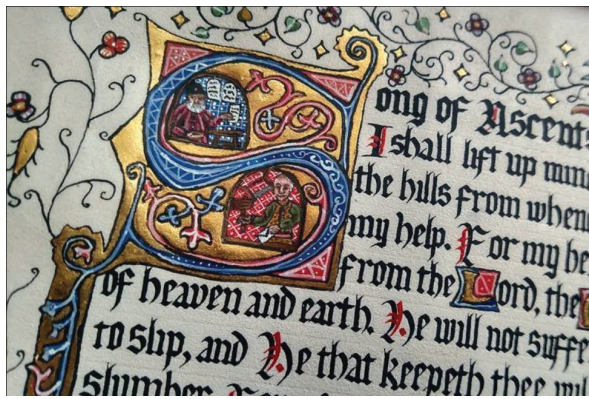 Song of Ascents
I shall lift up
the hills from when
my help. For my he
from the Lord, the
of heaven and earth. He will not suffe
to slip, and He that keepeth thee wil
slumber.